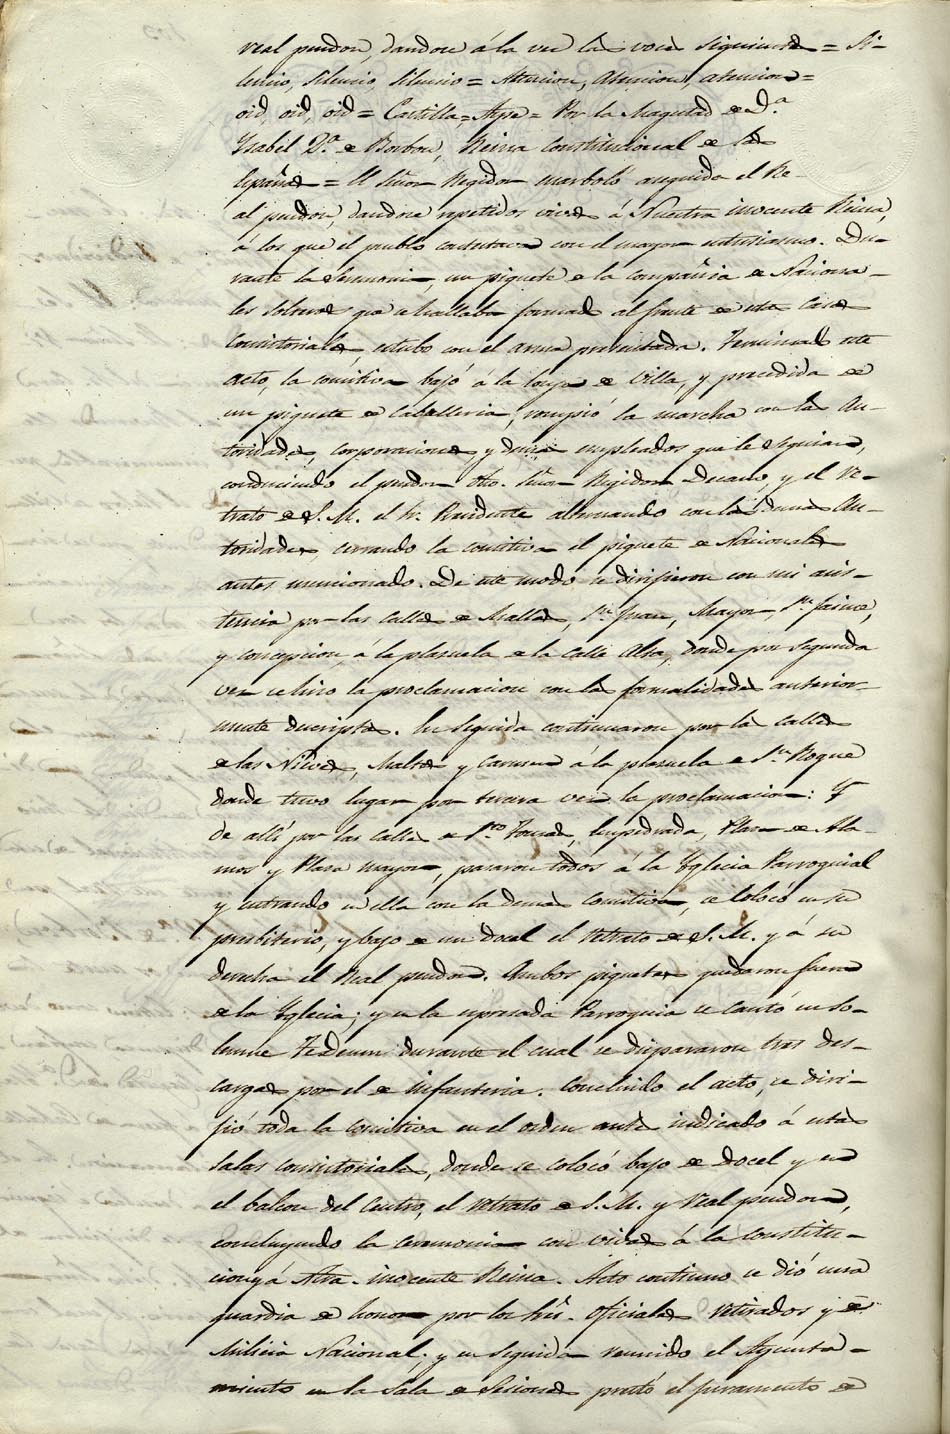 real pendon, dandose á la vez las voces siguientes = Si-
lencio, silencio, silencio = Atencion, atencion, atencion =
oid, oid, oid = Castilla = Aspe = Por la Magestad de D.ª
Ysabel 2.ª de Borbon, Reina Constitucional de las
Españas = El Señor Regidor enarboló enseguida el Re-
al pendon, dandose repetidos vivas á Nuestra inocente Reina,
á los que el pueblo contestava con el mayor entusiasmo. Du-
rante la seremonia, un piquete de la compañia de Naciona-
les solteros que se hallaba formado al frente de estas Casas
Consistoriales, estubo con el arma presentada. Terminado este
acto, la comitiva bajó á la lonja de villa, y precedida de
un piquete de caballeria, rompió la marcha con las Au-
toridades, corporaciones, y demas empleados que le seguian,
conduciendo el pendon dho. Señor Regidor Decano, y el Re-
trato de S. M. el Sr. Presidente alternando con las demas Au-
toridades, cerrando la comitiva el piquete de Nacionales
antes mencionado. De este modo se dirijieron con mi asis-
tencia por las calles de Mallas, Sn. Juan, Mayor, Sn. Jaime,
y Concepcion, á la plasuela de la Calle Alta, donde por segunda
vez se hizo la proclamacion con las formalidades anterior-
mente descriptas. En seguida continuaron por las calles
de las Nieves, Malta y Carmen á la plasuela de Sn. Roque
donde tuvo lugar por tercera vez la proclamacion: Y
de allí por las calles de Sto. Tomas, Empedrada, Plaza de Ala-
mos y Plaza mayor, pasaron todos á la Yglecia Parroquial
y entrando en ella con la demas Comitiva, se colocó en su
presbiterio, y bajo de un docel el retrato de S. M. y á su
derecha el Real pendon. Ambos piquetes quedaron fuera
de la Yglecia; y en la espresada Parroquia se cantó un so-
lemne Tedeum durante el cual se dispararon tres des-
cargas por el de infanteria. Concluido el acto, se diri-
jió toda la comitiva en el orden antes indicado á estas
salas consistoriales, donde se colocó bajo de docel y en
el balcon del Centro, el retrato de S. M. y Real pendon,
concluyendo la ceremonia con vivas á la constitu-
cion y á Ntra. inocente Reina. Acto continuo se dió una
guardia de honor por los Sres. oficiales retirados y de
Milicia Nacional; y en seguida reunido el Ayunta-
miento en la Sala de Sesiones prestó el juramento de